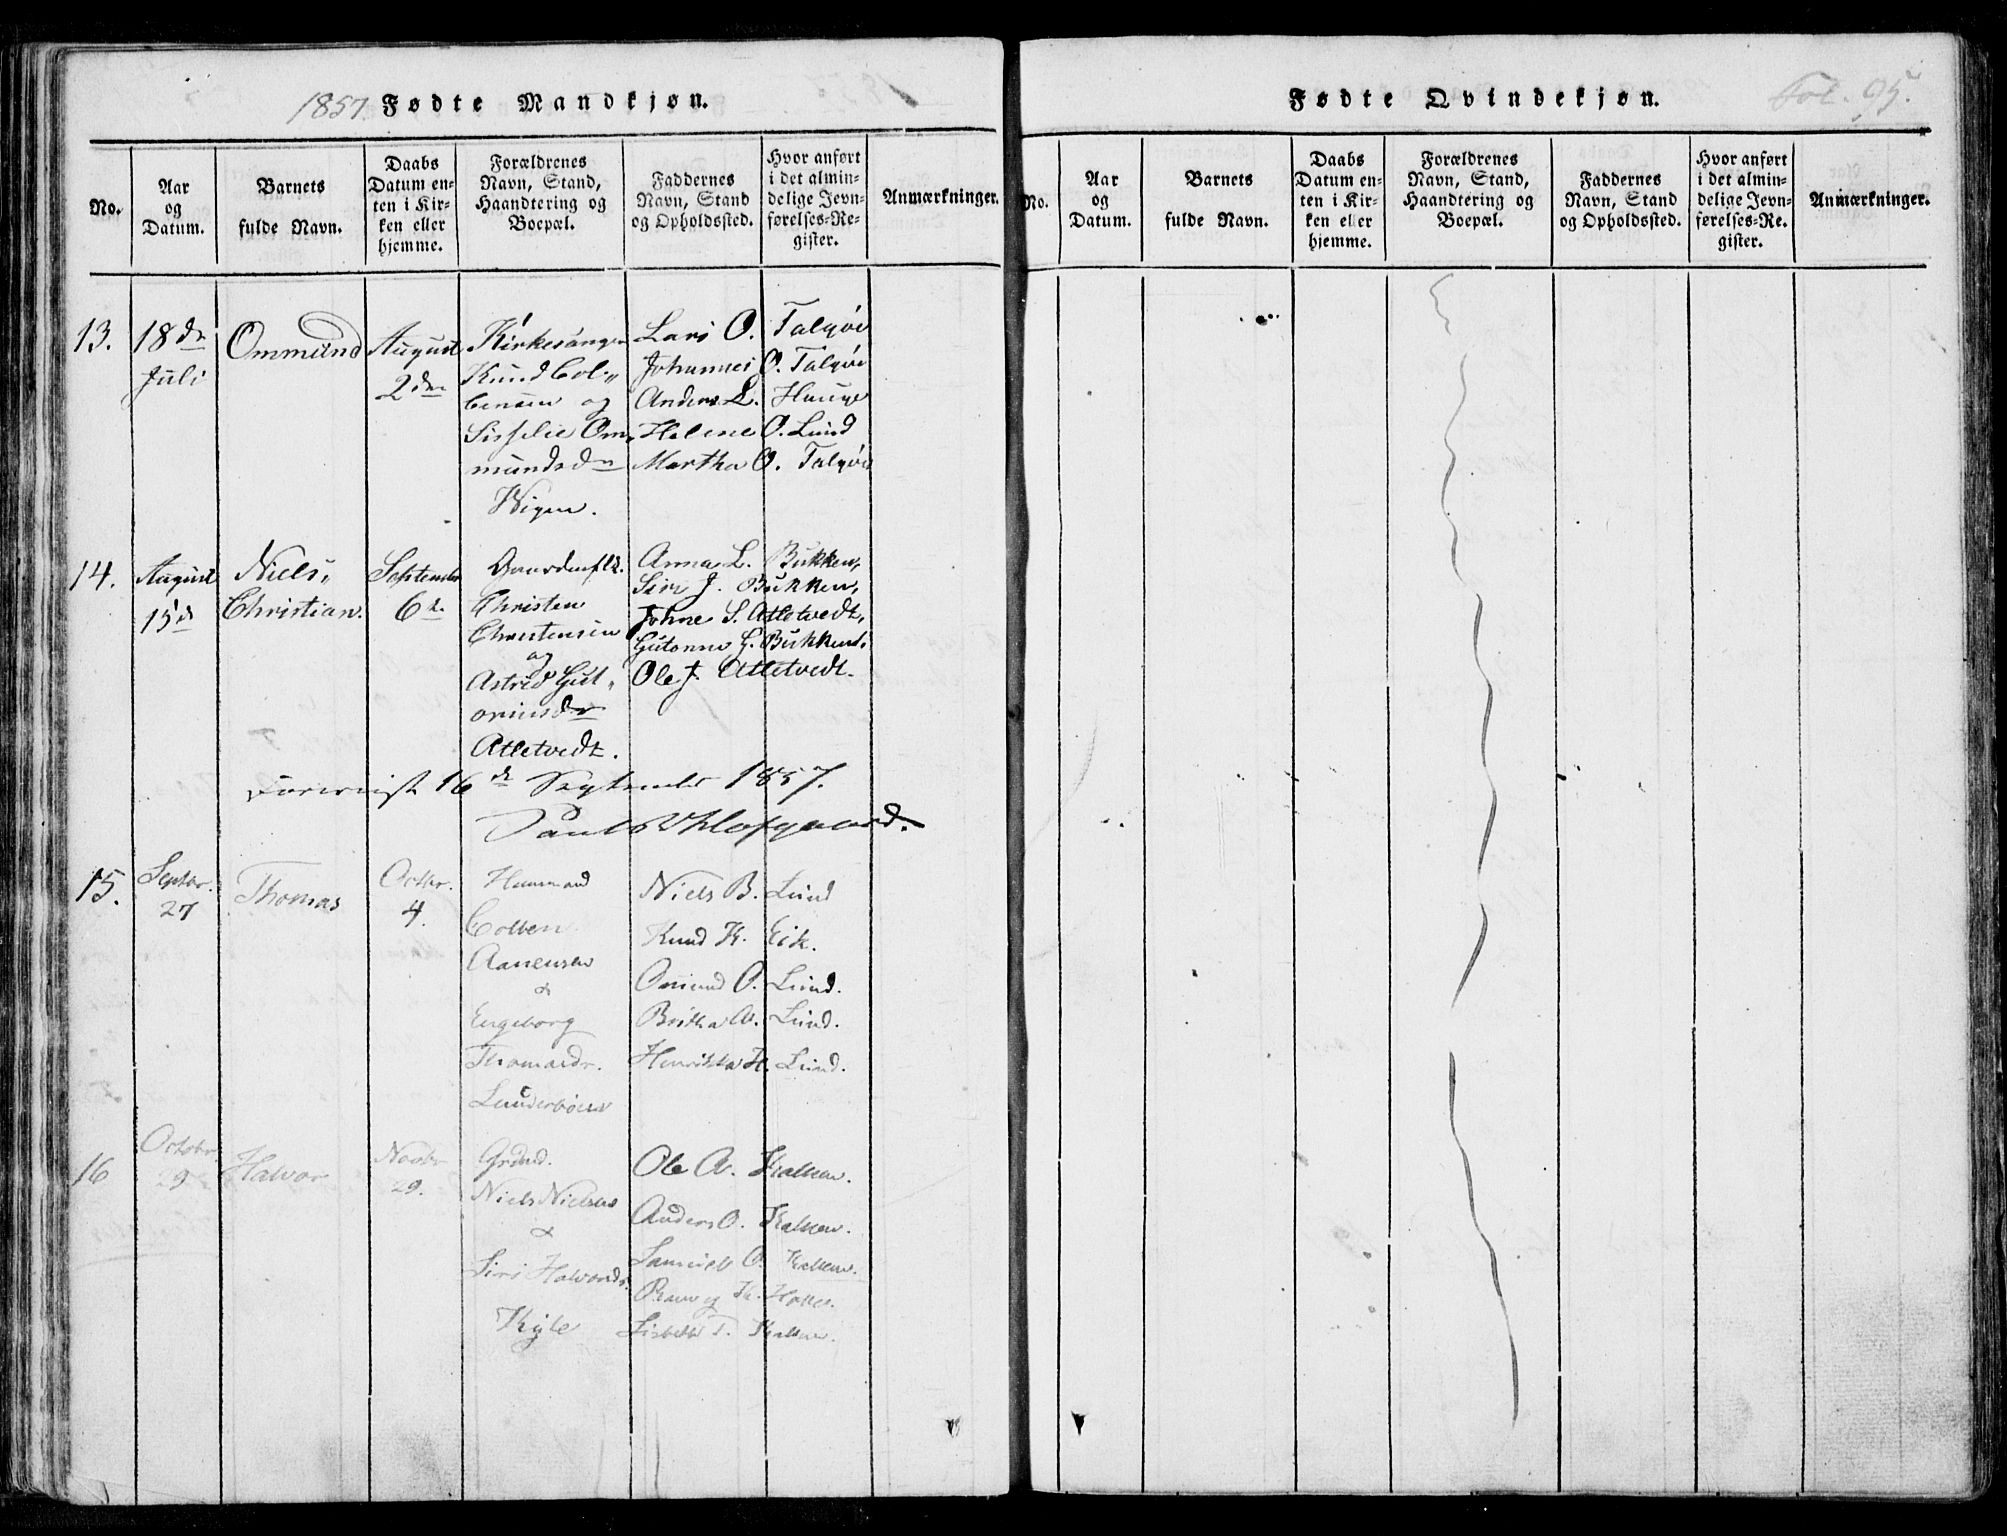 1857. Fødte Mandkjøn.
No.
Aar
og
Datum.
Barnets
fulde Navn.
Daabs
Datum en-
ten i Kir-
ken eller
hjemme.
Forældrenes
Navn, Stand,
Haandtering og
Boepæl.
Faddernes
Navn, Stand
og Opholdssted.
Hvor anført
i det almin-
delige Jevn-
førelses-Re-
gister.
Anmærkninger.
13.
18de
Juli
Ommund
August
2den
Kirkesanger
Knud Col-
bensen og
Sisselie Om-
mundsdr
Wigen.
Lars O. Talgøe
Johannes O. Talgøe
Anders L. Hauge
Helene O. Lund
Martha O. Talgøe
14.
August
15d
Niels,
Christian.
September
6te
Christen
Christensen
og
Astrid Gut-
ormsdr
Atletvedt.
Anna L. Bukken,
Siri J. Bukken,
Johne S. Atletvedt,
Gutorm G. Bukken,
Ole J. Atletvedt.
16de September 1857.
15.
Septbr.
27
Thomas
Octbr.
4.
Huusmand
Colben
Aanensen
&
Engeborg
Thomasdr.
Niels B. Lund
Knud K. Eik.
Omund O. Lund.
Britha A. Lund.
Henrikka H. Lund.
16
Octobr
29
Halvor
Novbr
29.
Grdmd.
Niels Nielsen
&
Siri Halvorsdr.
Ole A. Kalken.
Anders O. Kalken.
Samuel O. Kalken.
Lisbeth T. Kalken.
Fødte Qvindekjøn. Fol. 95.
No.
Aar
og
Datum.
Barnets
fulde Navn.
Daabs
Datum en-
ten i Kir-
ken eller
hjemme.
Forældrenes
Navn, Stand,
Haandtering og
Boepæl.
Faddernes
Navn, Stand
og Opholdssted.
Hvor anført
i det almin-
delige Jevn-
førelses-Re-
gister.
Anmærkninger.